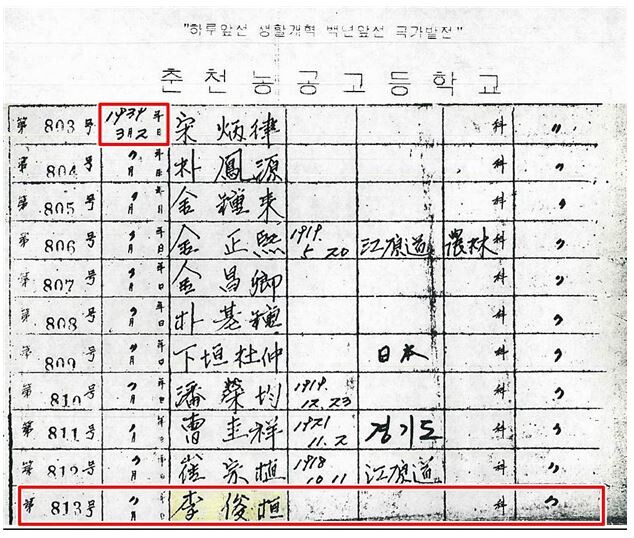 "하루앞선 생활개혁 백년앞선 국가발전"
춘천농공고등학교
第 803 号 1939年 3月2日 宋炳律 科 〃
第 804 号 〃年 〃月 日 朴鳳源 科 〃
第 805 号 〃年 〃月 日 金鍾来 科 〃
第 806 号 〃年 〃月 日 金正熙 1919. 5.20 江原道 農林科 〃
第 807 号 〃年 〃月 日 金昌卿 科 〃
第 808 号 〃年 〃月 日 朴基鍾 科 〃
第 809 号 〃年 〃月 日 下垣杜仲 日本 科 〃
第 810 号 〃年 〃月 日 潘榮均 1919. 12.23 科 〃
第 811 号 〃年 〃月 日 曺圭祥 1921 11.2 경기도 科 〃
第 812 号 〃年 〃月 日 崔宗植 1918 10.11 江原道 科 〃
第 813 号 〃年 〃月 日 李俊植 科 〃